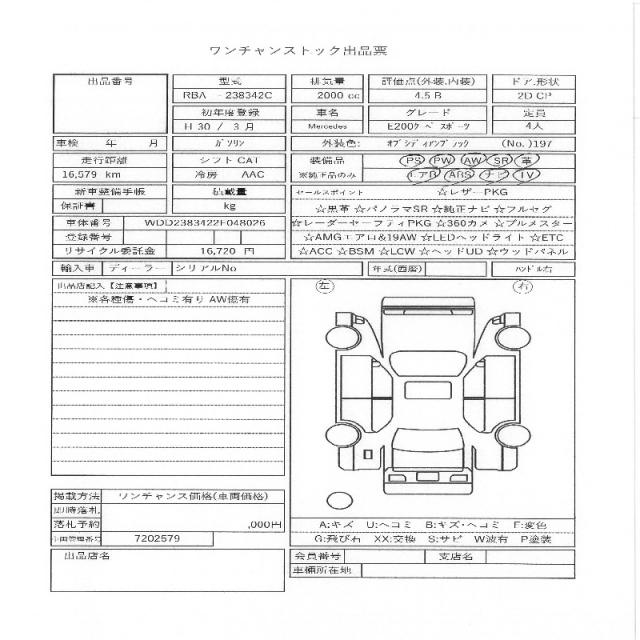 ワンチャンストック出品票
出品番号 型式 排気量 評価点(外装,内装) ドア.形状
RBA -238342C 2000 cc 4.5 B 2D CP
初年度登録 車名 グレード 定員
H 30 / 3 月 Mercedes E200クーペ スポーツ 4人
車検 年 月 ガソリン 外装色: オブシディアンブラック (No.)197
走行距離 シフトCAT 装備品 PS PW AW SR 革
16,579 km 冷房 AAC ※純正品のみ エアB ABS ナビ TV
新車整備手帳 積載量 セールスポイント ☆レザーPKG
保証書 kg ☆黒革 ☆パノラマSR ☆純正ナビ ☆フルセグ
車体番号 WDD2383422F048026 ☆レーダーセーフティPKG ☆360カメ ☆ブルメスター
登録番号 ☆AMGエアロ&19AW ☆LEDヘッドライト ☆ETC
リサイクル委託金 16,720 円 ☆ACC ☆BSM ☆LCW ☆ヘッドUD ☆ウッドパネル
輸入車 ディーラー シリアルNo 年式(西暦) ハンドル右
出品店記入【注意事項】 左 右
※各種傷・ヘコミ有り AW傷有
掲載方法 ワンチャンス価格(車両価格)
即時落札
落札予約 ,000円 A:キズ U:ヘコミ B:キズ・ヘコミ F:変色
7202579 G:飛び石 XX:交換 S:サビ W波有 P塗装
出品店名 会員番号 支店名
車輌所在地